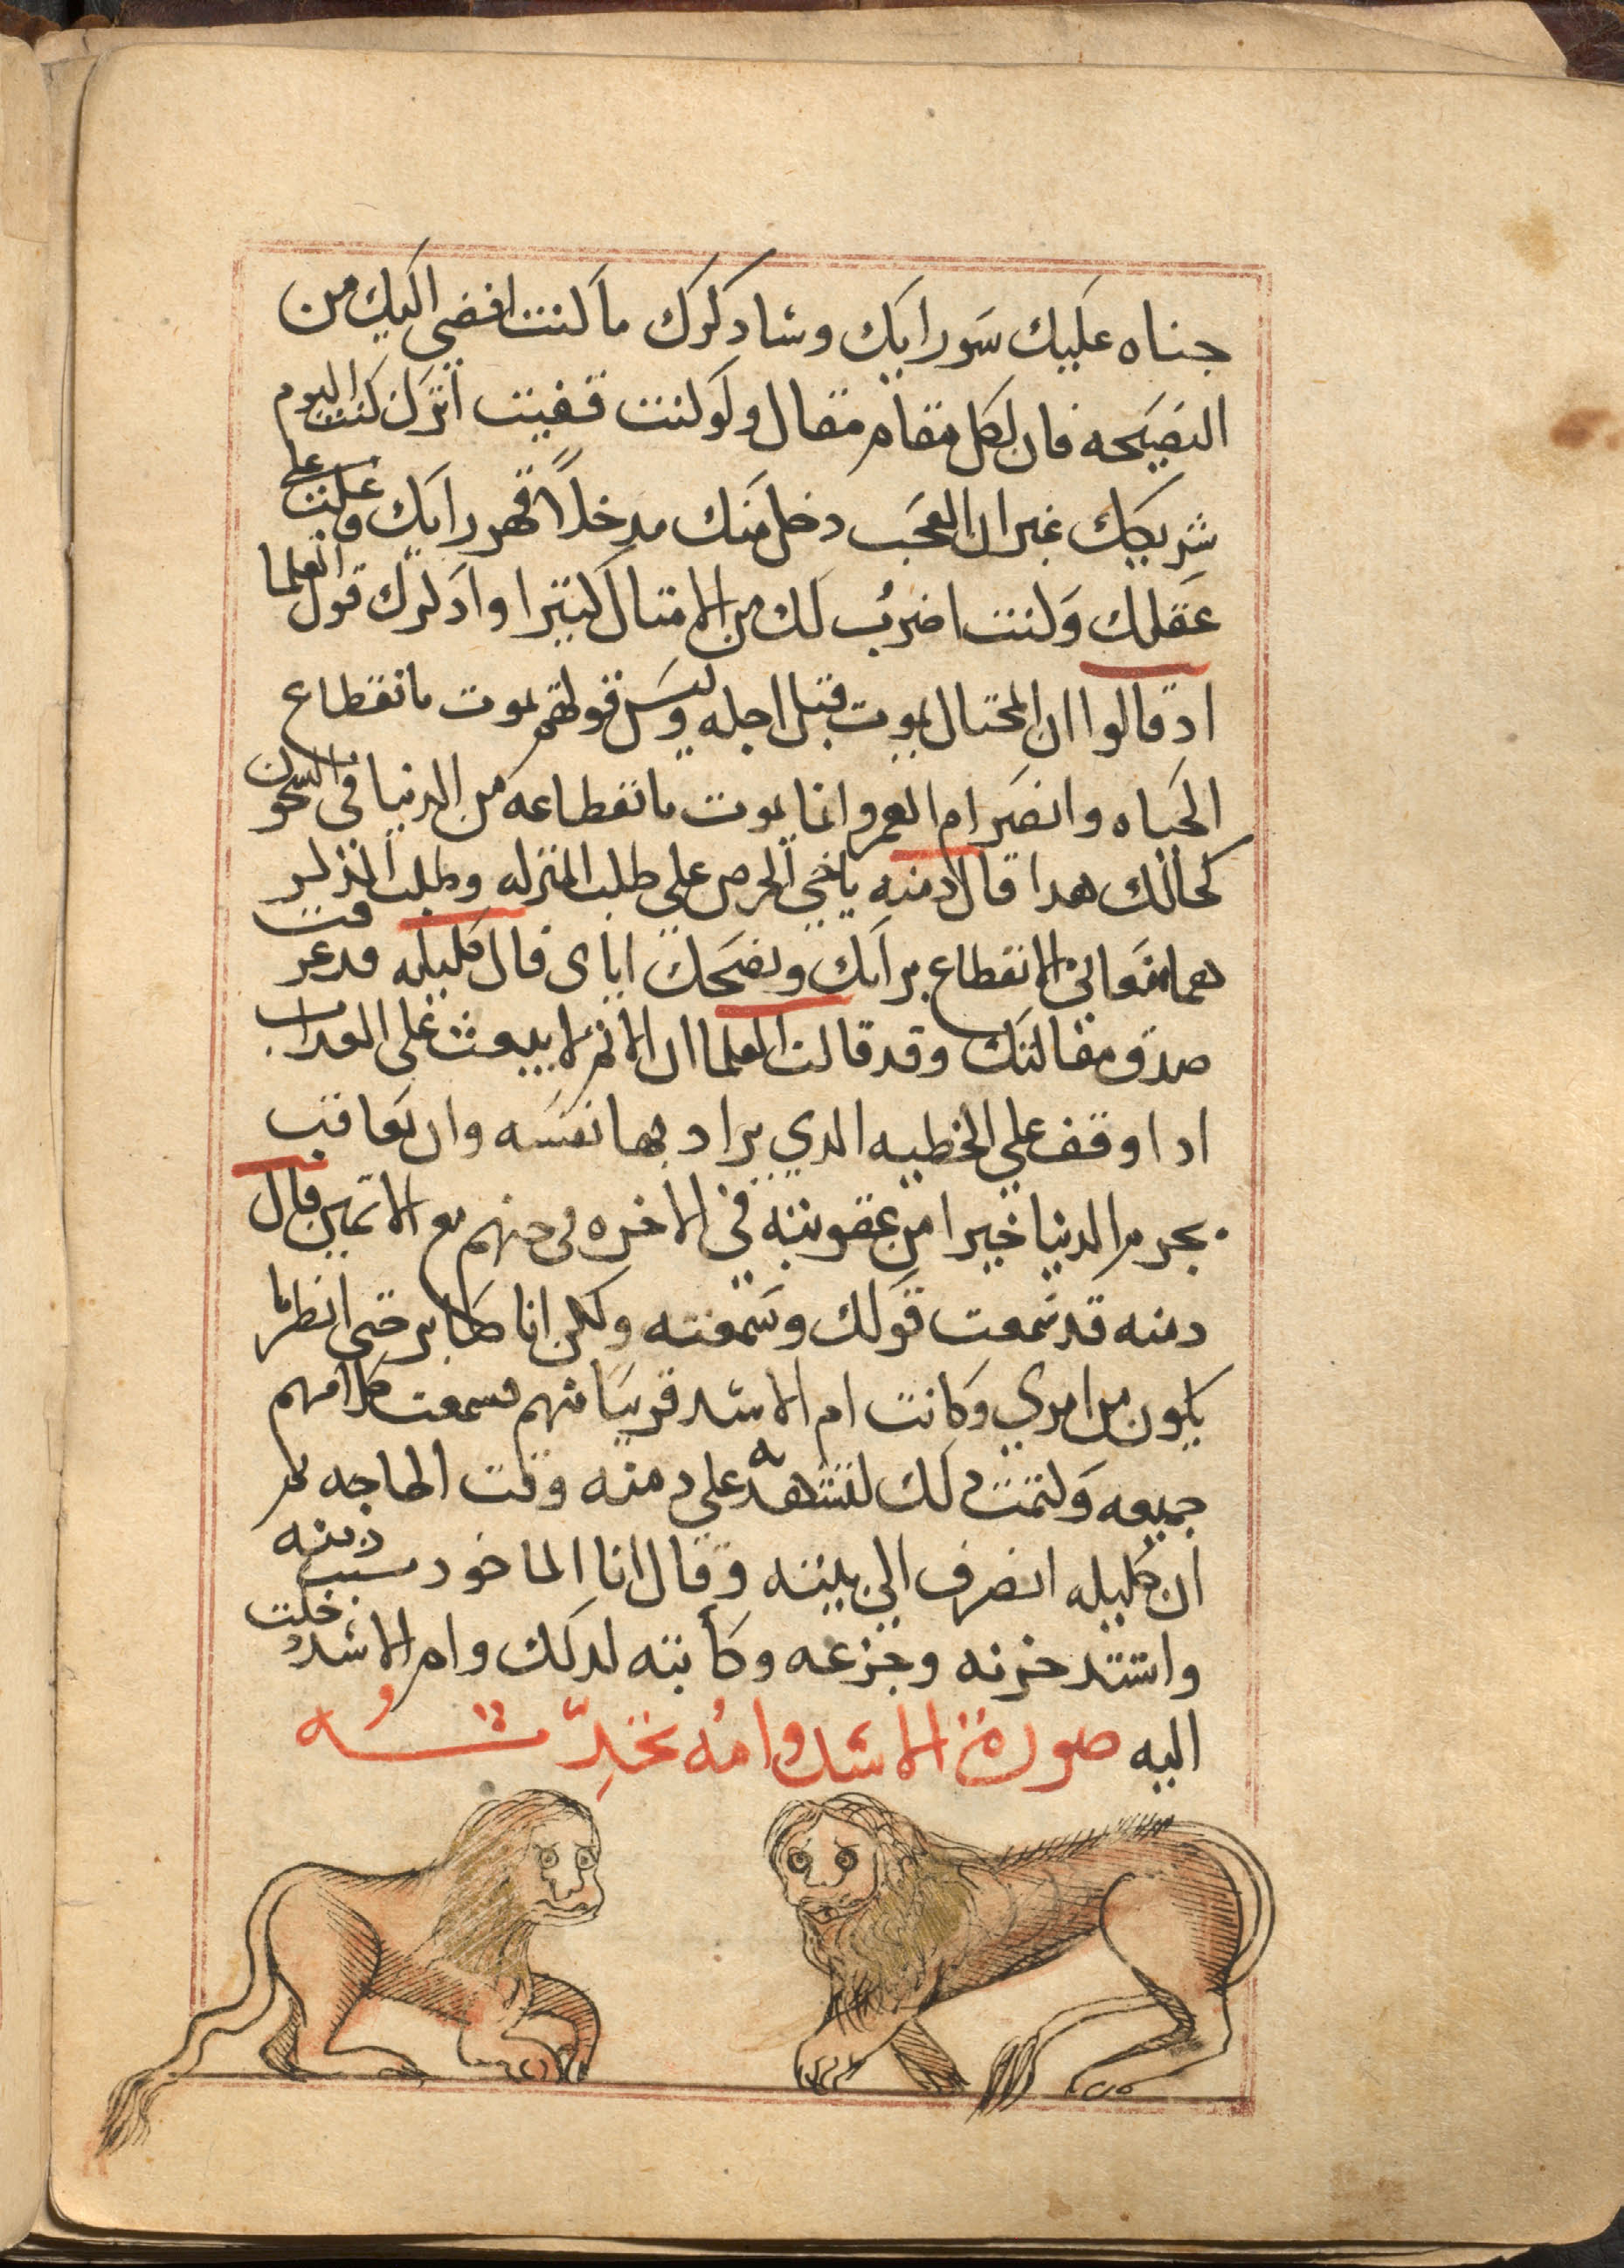 جناه عليك سو رايك وشاد كرك ما كنت افضي اليك من
النصيحه فان لكل مقام مقال ولو كنت قفيت اثرك كنت اليوم
شريكك غير ان العجب دخل منك مدخلاً قهر رايك وغلب على
عقلك وكنت اضرب لك من الامتال كتيرا وادكرك قول العلما
اد قالوا ان المحتال يموت قبل اجله وليس قولهم يموت بانقطاع
الحياه وانصرام العمر وانما يموت بانقطاعه من الدنيا في السجون
كحالك هدا قال دمنه ياخي الحرص على طلب المنزله وطلب المنزله
هما الانقطاع برايك ونصحك اياى قال كليله قد عرفت
صدق مقالتك وقد قالت العلما ان الاثم لا يبعث على العداب
ادا وقف على الخطيه الدي يراد بها نفسه وان يعاقب
بجرم الدنيا خيرا من عقوبته في الاخره في جهنم مع الاتمين قال
دمنه قد سمعت قولك وسمعته ولكن انا صابر حتى انظر ما
يكون من امري وكانت ام الاسد قريبا منهم فسمعت كلامهم
جميعه وكتمت دلك لتشهد به على دمنه وقت الحاجه ثم
ان كليله انصرف الى بيته وقال انا الماخود بسبب دمنه
واشتد حزنه وجزعه وكأبته لدلك وام الاسد دخلت
اليه صورة الاسد وامه تحدّثه